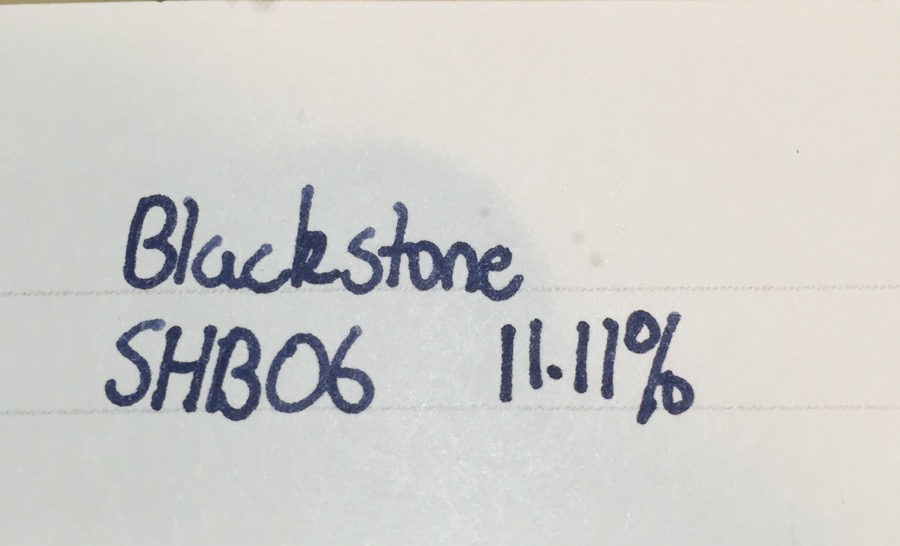 Blackstone
SHB06 11.11%